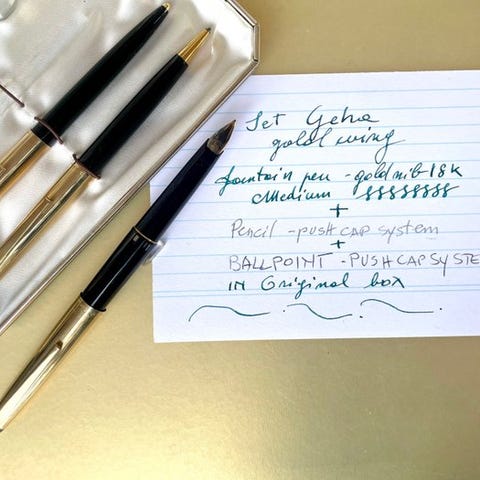 Set Geha
gold wing
fountain pen - gold nib 18k
Medium ssssssss
+
Pencil - PUSH CAP system
+
BALLPOINT - PUSH CAP SYSTE
IN Original box